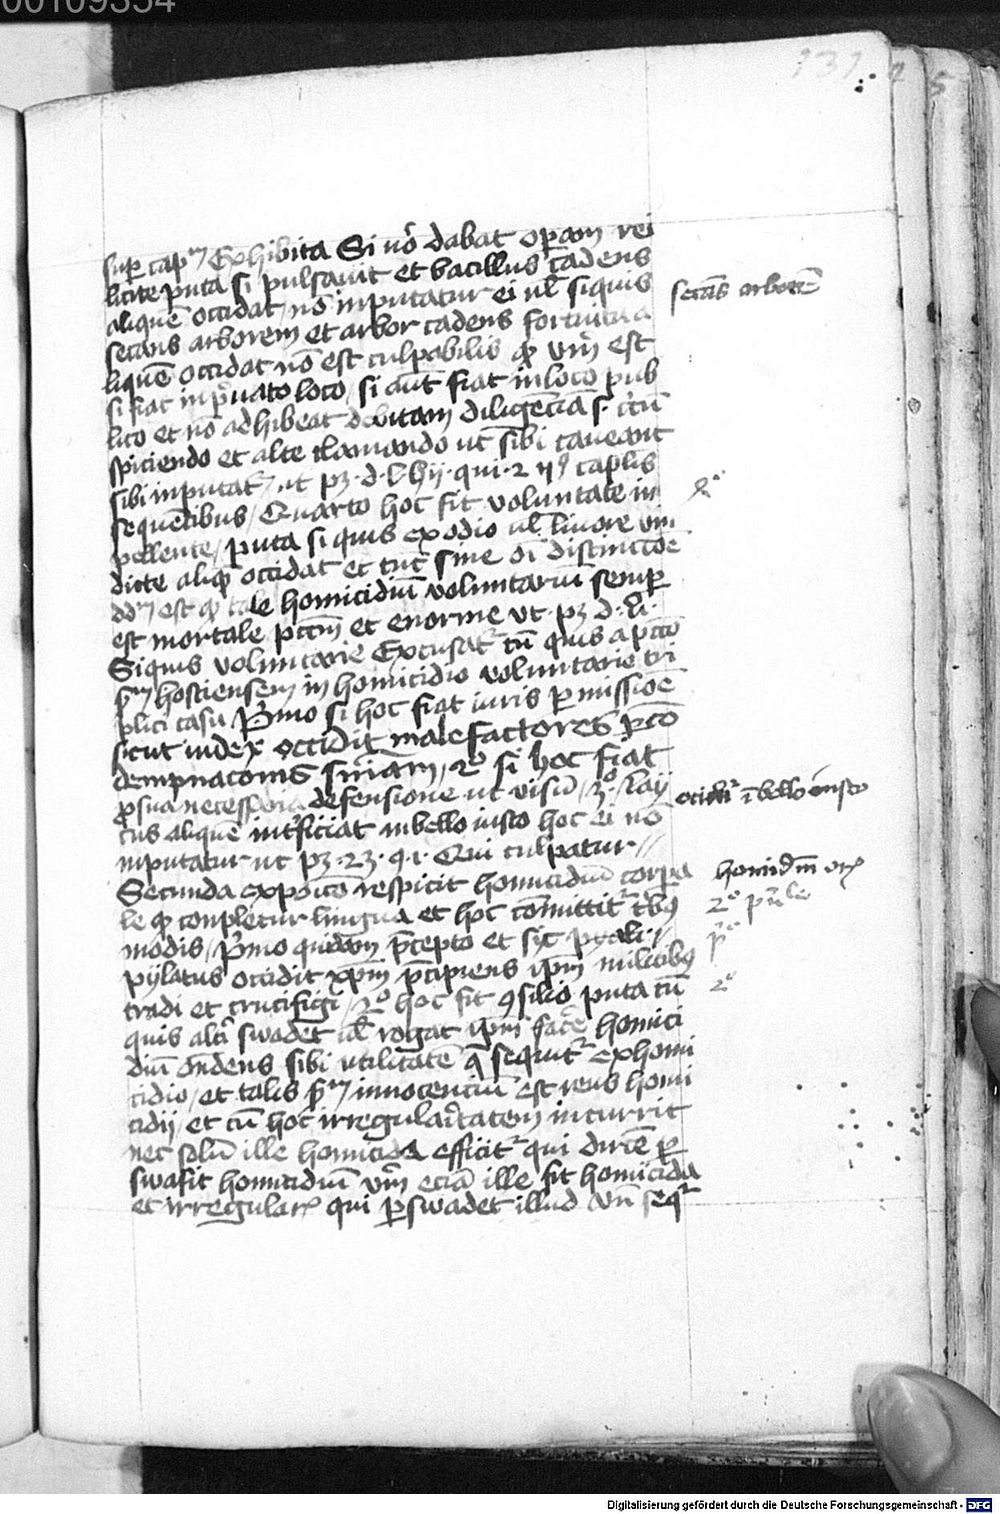 00109354
131
sup capm Exhibita Si vo dabat operam rei
licite puta si pulsauit et bacillus cadens
aliquē occidat / nō inputatur ei ul siquis
secans arborem et arbor cadens fortuitu a
liquē occidat nō est culpabilis qd vm est
si fiat in pruato loco / si aut fiat in loco pub
lico et nō adhibeat debitam diligēciā s. circū
spiciendo et alte clamando ut sibi caueant
sibi inputat ut pz . d . l . hij . qui . 2 . 119 caplis
sequētibus / Quarto hoc fit voluntate in
pellente / puta si quis ex odio ul liuore vin
dicte aliqm occidat et tūc sine oi distinctioē
est qd tale homicidiū voluntariū semper
est mortale pctm et enorme ut . pz d . li .
Siquis voluntarie Excusat tn quis a pctō
pm hostiensem in homicidio voluntarie tri
plici casu Primo si hoc fiat iuris pmissioē
sicut iudex occidit malefactores pctō
dempnacōnis sniam / 2o si hoc fiat
p sua necessaria defensione ut visū / 3o si aly
cus aliquē int'ficiat in bello iusto hoc ei nō
inputatur ut pz . 23 . q . 1 . Qui culpatur //
Secunda expoicō respicit homicidiū corpa
le qd conpletur lingua et hoc cōmittit tbq
modis / Primo quidam pcepto et sic
pylatus occidit xpm pcipiens ipm militibq
tradi et crucifigi / 2o hoc fit qsilio puta cū
quis alti swadet ul rogat ipm facē homici
diū ondens sibi utilitatē q sequit ex homi
cidio / et talis pm innocenciū est reus homi
cidij / et cū hoc irregularitatem incurrit
nec solū ille homicida efficit qui dircē per
swasit homicidiū vm eciā ille fit homicida
et irregular qui pswadet illud vn seqr
secās arborē
occidit ī bello iusto
homicidm
2o
po
2o
Digitalisierung gefördert durch die Deutsche Forschungsgemeinschaft - DFG